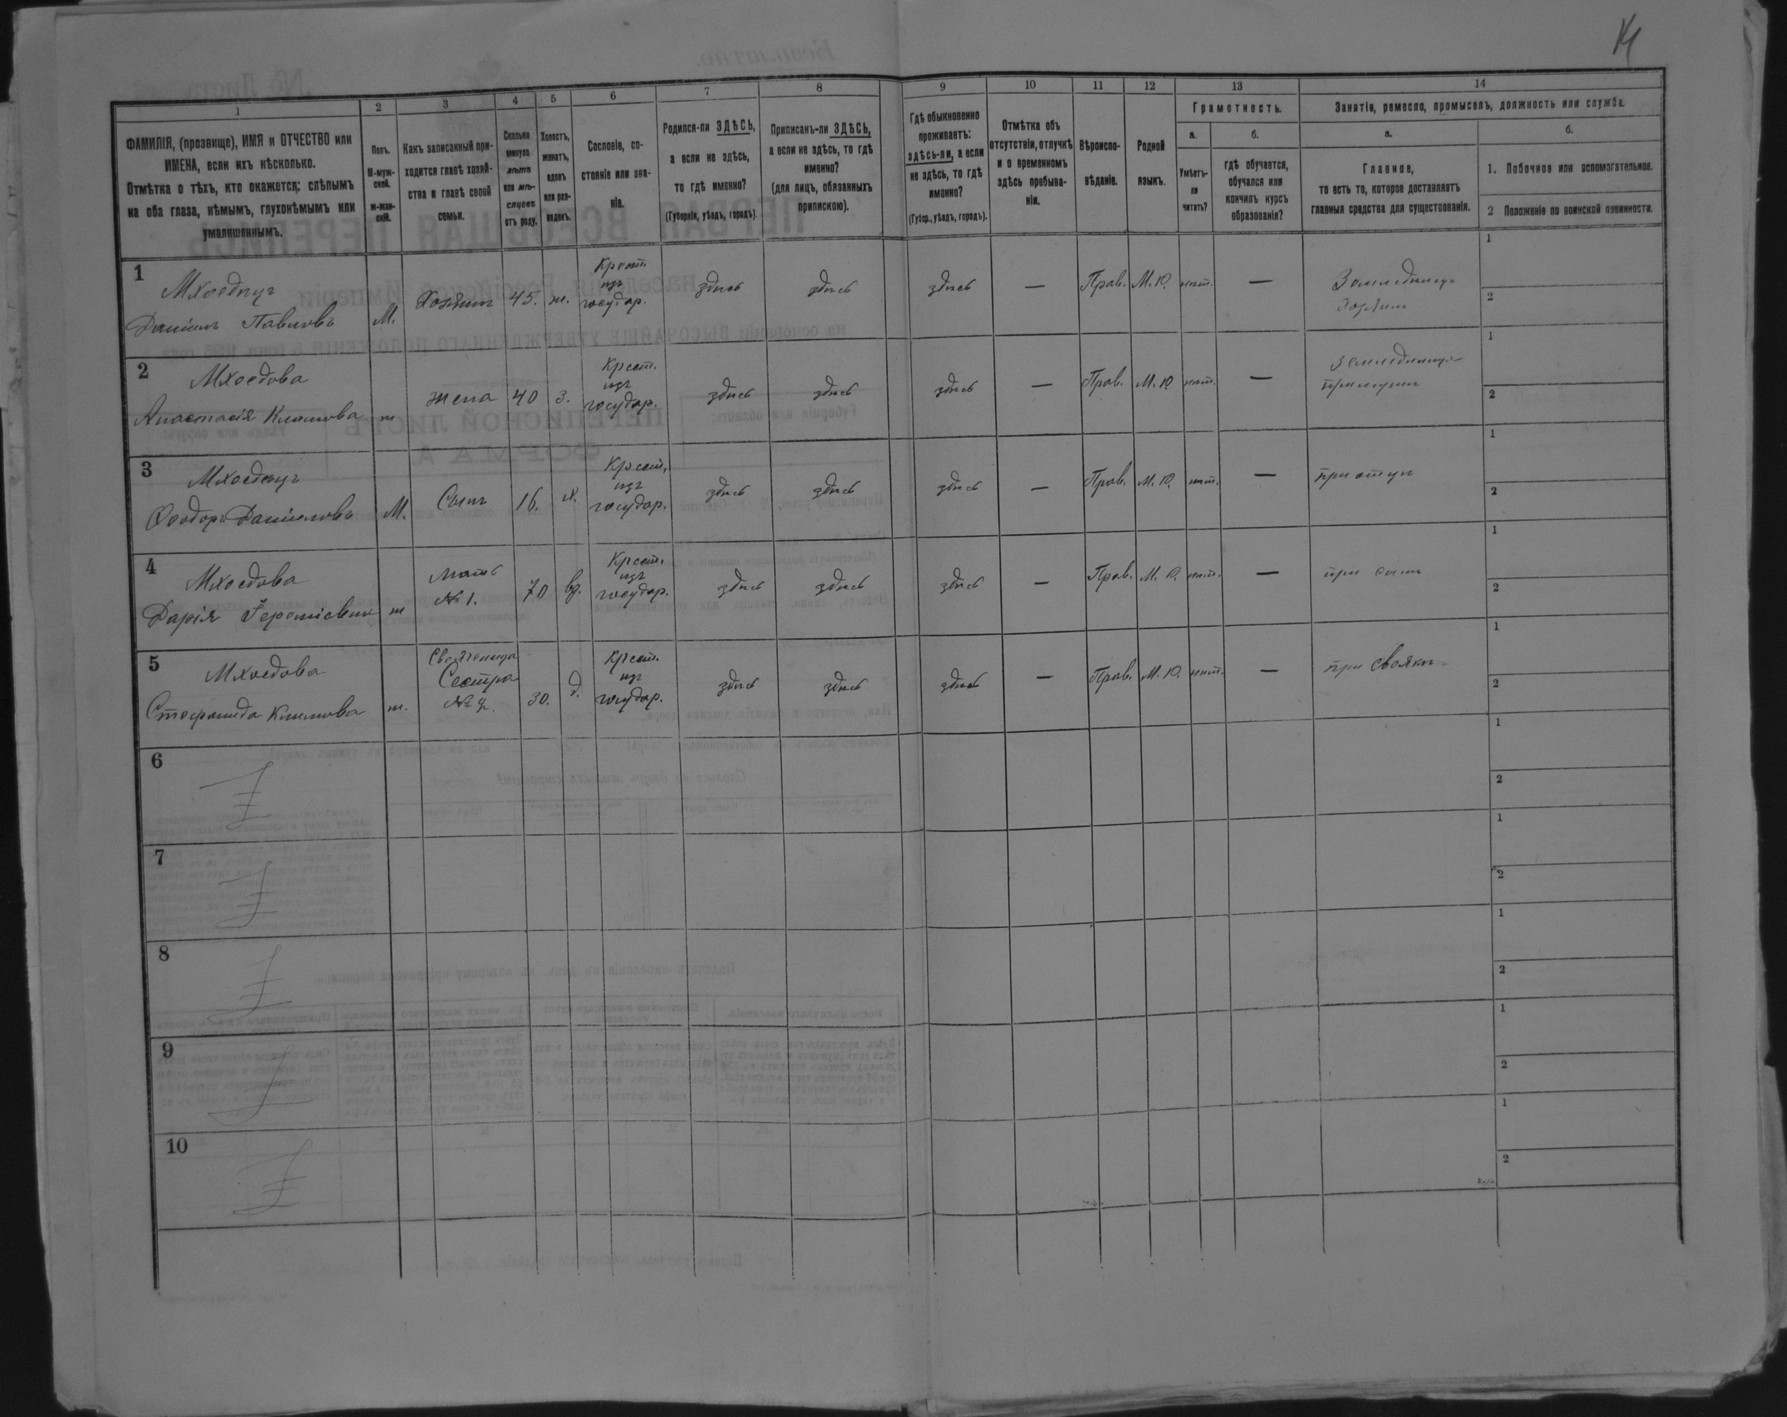 1 2 3 4 5 6 7 8 9 10 11 12 13 14
ФАМИЛІЯ, (прозвище), ИМЯ и ОТЧЕСТВО или
ИМЕНА, если ихъ нѣсколько.
Отмѣтка о тѣхъ, кто окажется: слѣпымъ
на оба глаза, нѣмымъ, глухонѣмымъ или
умалишеннымъ.
Полъ.
М-муж-
ской.
ж-жен-
скій.
Какъ записанный при-
ходится главѣ хозяй-
ства и главѣ своей
семьи.
Сколько
минуло
лѣтъ
или мѣ-
сяцевъ
отъ роду.
Холостъ,
женатъ,
вдовъ
или раз-
веденъ.
Сословіе, со-
стояніе или зва-
ніе.
Родился-ли ЗДѢСЬ,
а если не здѣсь,
то гдѣ именно?
(Губернія, уѣздъ, городъ).
Приписанъ-ли ЗДѢСЬ,
а если не здѣсь, то гдѣ
именно?
(для лицъ, обязанныхъ
припискою).
Гдѣ обыкновенно
проживаетъ:
здѣсь-ли, а если
не здѣсь, то гдѣ
именно?
(Губер., уѣздъ, городъ).
Отмѣтка объ
отсутствіи, отлучкѣ
и о временномъ
здѣсь пребыва-
ніи.
Вѣроиспо-
вѣданіе.
Родной
языкъ.
Грамотность.
а.
Умѣетъ-
ли
читать?
б.
гдѣ обучается,
обучался или
кончилъ курсъ
образованія?
Занятіе, ремесло, промыселъ, должность или служба.
а.
Главное,
то есть то, которое доставляетъ
главныя средства для существованія.
б.
1. Побочное или вспомогательное.
2 Положеніе по воинской повинности.
1
Даніилъ Павловъ М. Хозяинъ 45. ж. Крест. изъ государ. здѣсь здѣсь здѣсь — Прав. М. Ю. нѣт. —
1
2
2 Мхоедова
Анастасія Климова ж жена 40 з. Крест. изъ государ. здѣсь здѣсь здѣсь — Прав. М. Ю нѣт. —
при мужѣ
1
2
3
Ѳеодоръ Даніиловъ М. Сынъ 16. х. Крест. изъ государ. здѣсь здѣсь здѣсь — Прав. М. Ю. нѣт. — при отцѣ
1
2
4 Мхоедова
Дарія ж мать № 1. 70 вд. Крест. изъ государ. здѣсь здѣсь здѣсь — Прав. М. Ю. нѣт. — при сынѣ
1
2
5 Мхоедова
Стефанида Климова ж. Сестра № 2. 30. д. Крест. изъ государ. здѣсь здѣсь здѣсь — Прав. М. Ю. нѣт. —
1
2
6
1
2
7
1
2
8
1
2
9
1
2
10
1
2